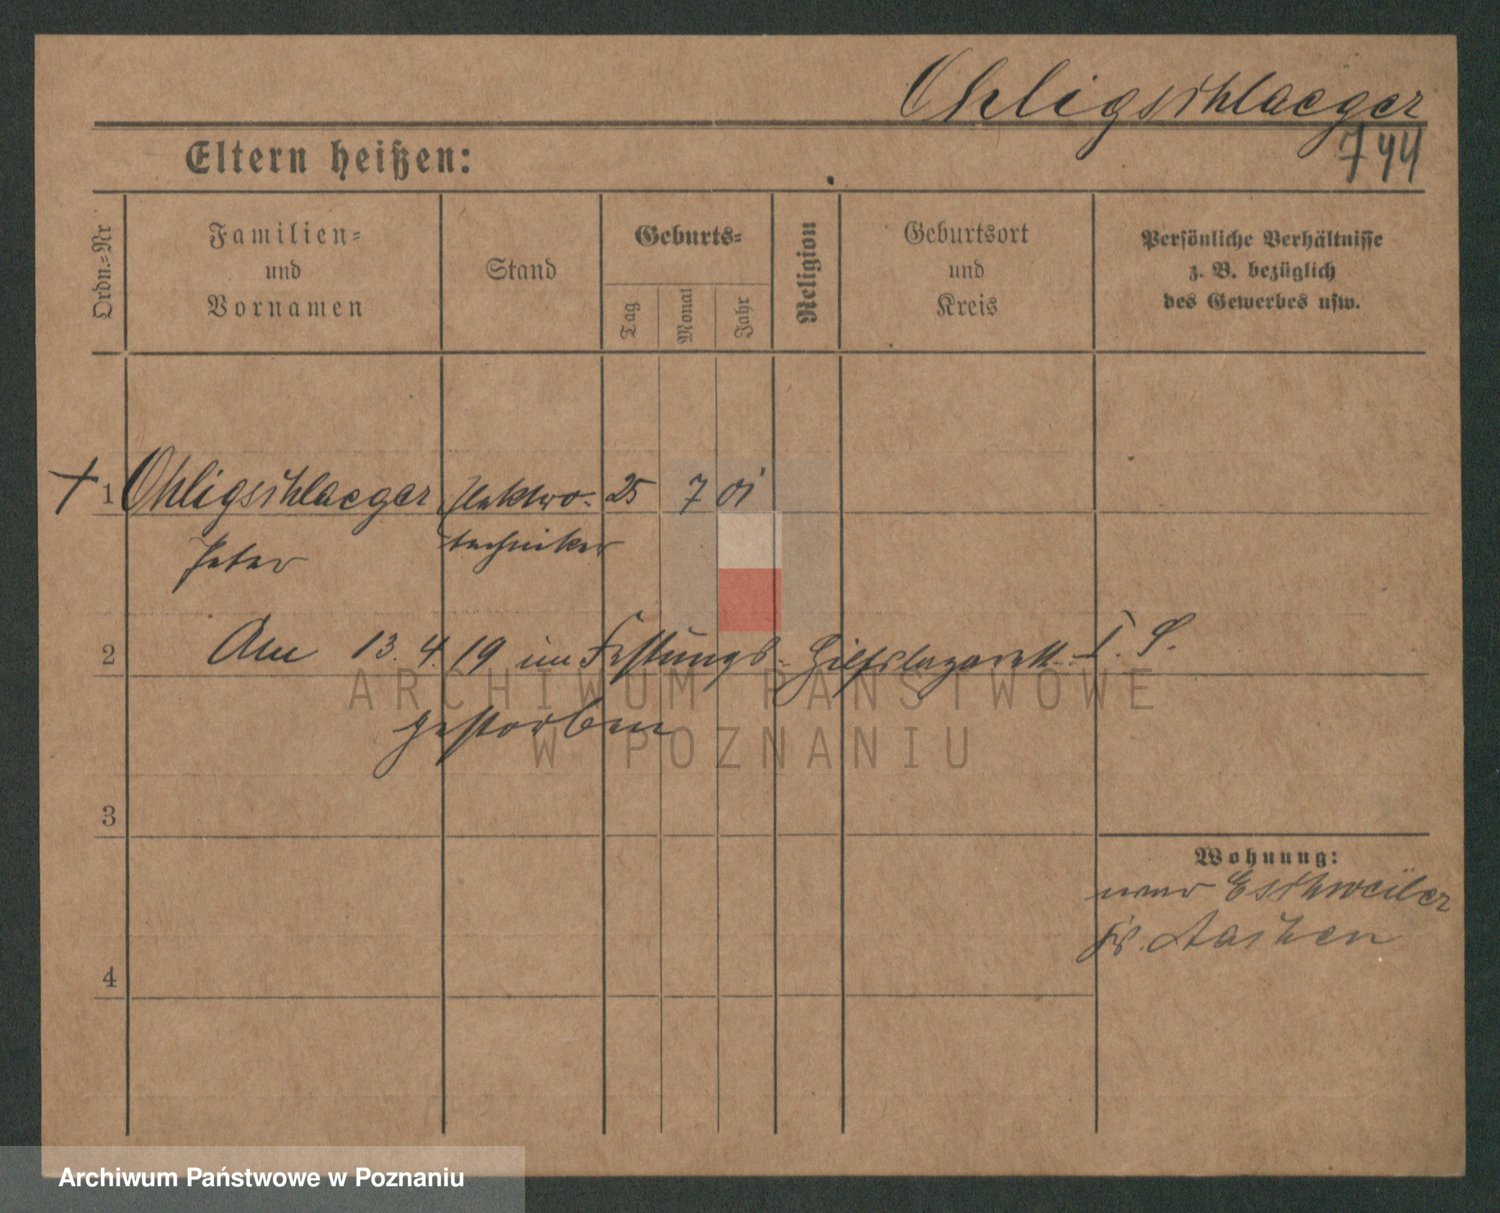 Ohligschlaeger
744
Eltern heißen:
Ordn.-Nr
Familien-
und
Vornamen
Stand
Geburts-
Tag
Monat
Jahr
Religion
Geburtsort
und
Kreis
Persönliche Verhältnisse
z. B. bezüglich
des Gewerbes usw.
1 Ohligschlaeger Elektro- 25 7 01
Peter techniker
2 Am 13. 4. 19 im Festungs-Hilfslazarett I. S.
gestorben
3
Wohnung:
Eschweiler
Kr. Aachen
4
ARCHIWUM PAŃSTWOWE
W POZNANIU
Archiwum Państwowe w Poznaniu